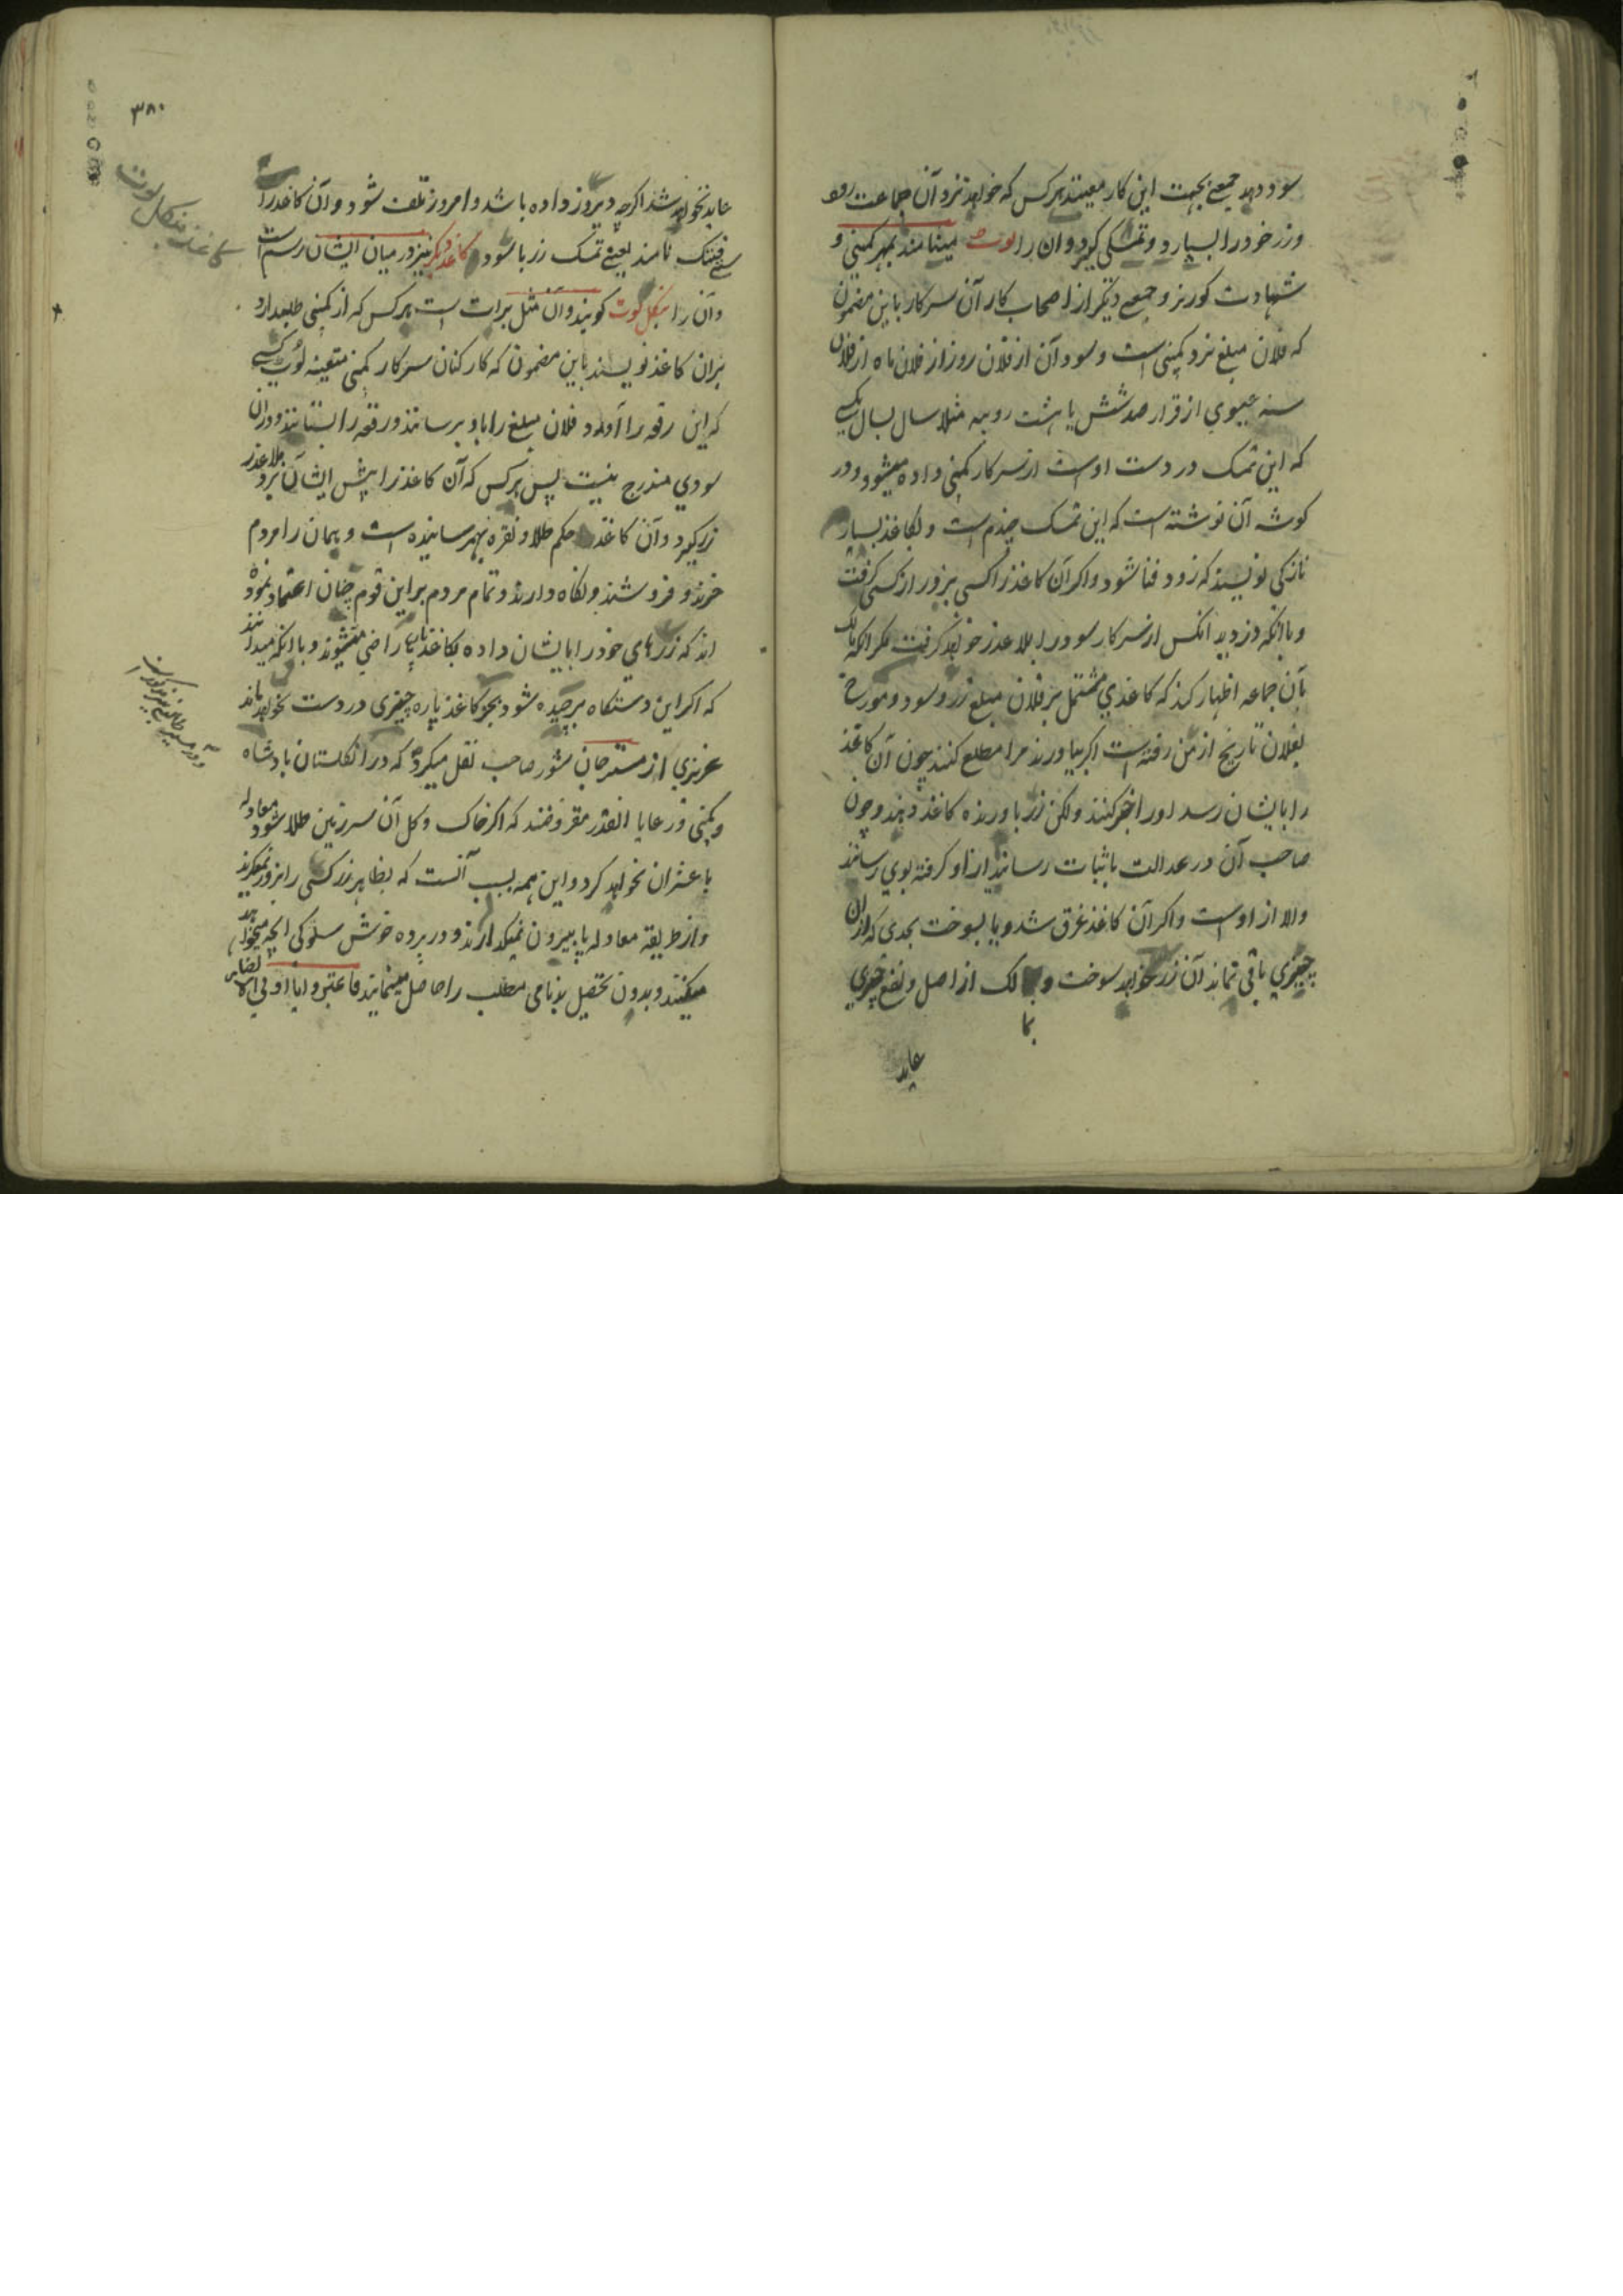 سود دهد جمعے بجهت این کار معینند هرکس که خواهد نزد آن جماعت رود
وزر خود را بسپارد و تمسکی گیرد وان را لوت مینامند بمهر کمپنی و
شهادت کورنر و جمعے دیکر از اصحاب کار آن سرکار باین مضمون
که فلان مبلغ نزد کمپنی است و سود آن از فلان روز از فلان ماه از فلان
سنه عیسوي از قرار صد شش یا هشت روپیه مثلا سال بسال بکسے
که این تمسک در دست اوست از سرکار کمپنی داده میشود و در
کوشه آن نوشته است که این تمسک چندم است و بکاغذ بسیار
نازکی نویسند که زود فنا شود و اکر آن کاغذ را کسی بزور از کسی کرفت
و یا انکه دزدید انکس از سرکار سود را بلا عذر خواهد کرفت مکر انکه مالک
بآن جماعه اظهار کند که کاغذي مشتمل بر فلان مبلغ زر و سود و مورخ
بفلان تاریخ از من رفته است اکر بیاورند مرا مطلع کنند چون آن کاغذ
را بایشان رسد اورا خبر کنند ولکن زر باورنده کاغذ دهند و چون
صاحب آن در عدالت باثبات رساند از او کرفته بوي رسانند
والا از اوست و اکر آن کاغذ غرق شد و یا بسوخت بحدی که از ان
چیزي باقی نماند آن زر خواهد سوخت و بمالک از اصل و نفع چیزي
عاید
۳۸۰
عاید نخواهد شد اکرچه دیروز داده باشد و امروز تلف شود و آن کاغذ را
نامند یعنے تمسک زر با سود و کاغذ دیکر نیز در میان ایشان رسم است
کاغذ بنکل لوت
وآن را بنکل لوت کویند وآن مثل برات است هرکس که از کمپنی طلبدارد
بران کاغذ نویسند باین مضمون که کارکنان سرکار کمپنی متعینه لوت کسے
که این رقعه را آورد فلان مبلغ را باو برسانند و رقعه را بستانند و در ان
سودي مندرج نیست پس هرکس که آن کاغذ را پیش ایشان برد بلا عذر
زر کیرد و آن کاغذ حکم طلا و نقره بهمرسانیده است و همان را مردم
خرند و فروشند و نکاه دارند و تمام مردم بر این قوم چنان اعتماد نموده
اند که زرهاي خود را بایشان داده بکاغذ پاره راضی میشوند و با انکه میدانند
که اکر این دستکاه برچیده شود بجز کاغذ پاره چیزی در دست نخواهد ماند
عزیزي از مستر جان شور صاحب نقل میکرد که در انکلستان پادشاه
و کمپنی از رعایا انقدر مقروضند که اکر خاک و کل آن سرزمین طلا شود معادله
با عشر ان نخواهد کرد و این همه بسبب آنست که بظاهر زر کسی را بزور نمیکیرند
و از طریقه معادله پا بیرون نمیکذارند و در پرده خوش سلوکی انچه میخواهند
میکنند و بدون تحصیل بدنامی مطلب را حاصل مینمایند فاعتبروا یا اولی الابصار